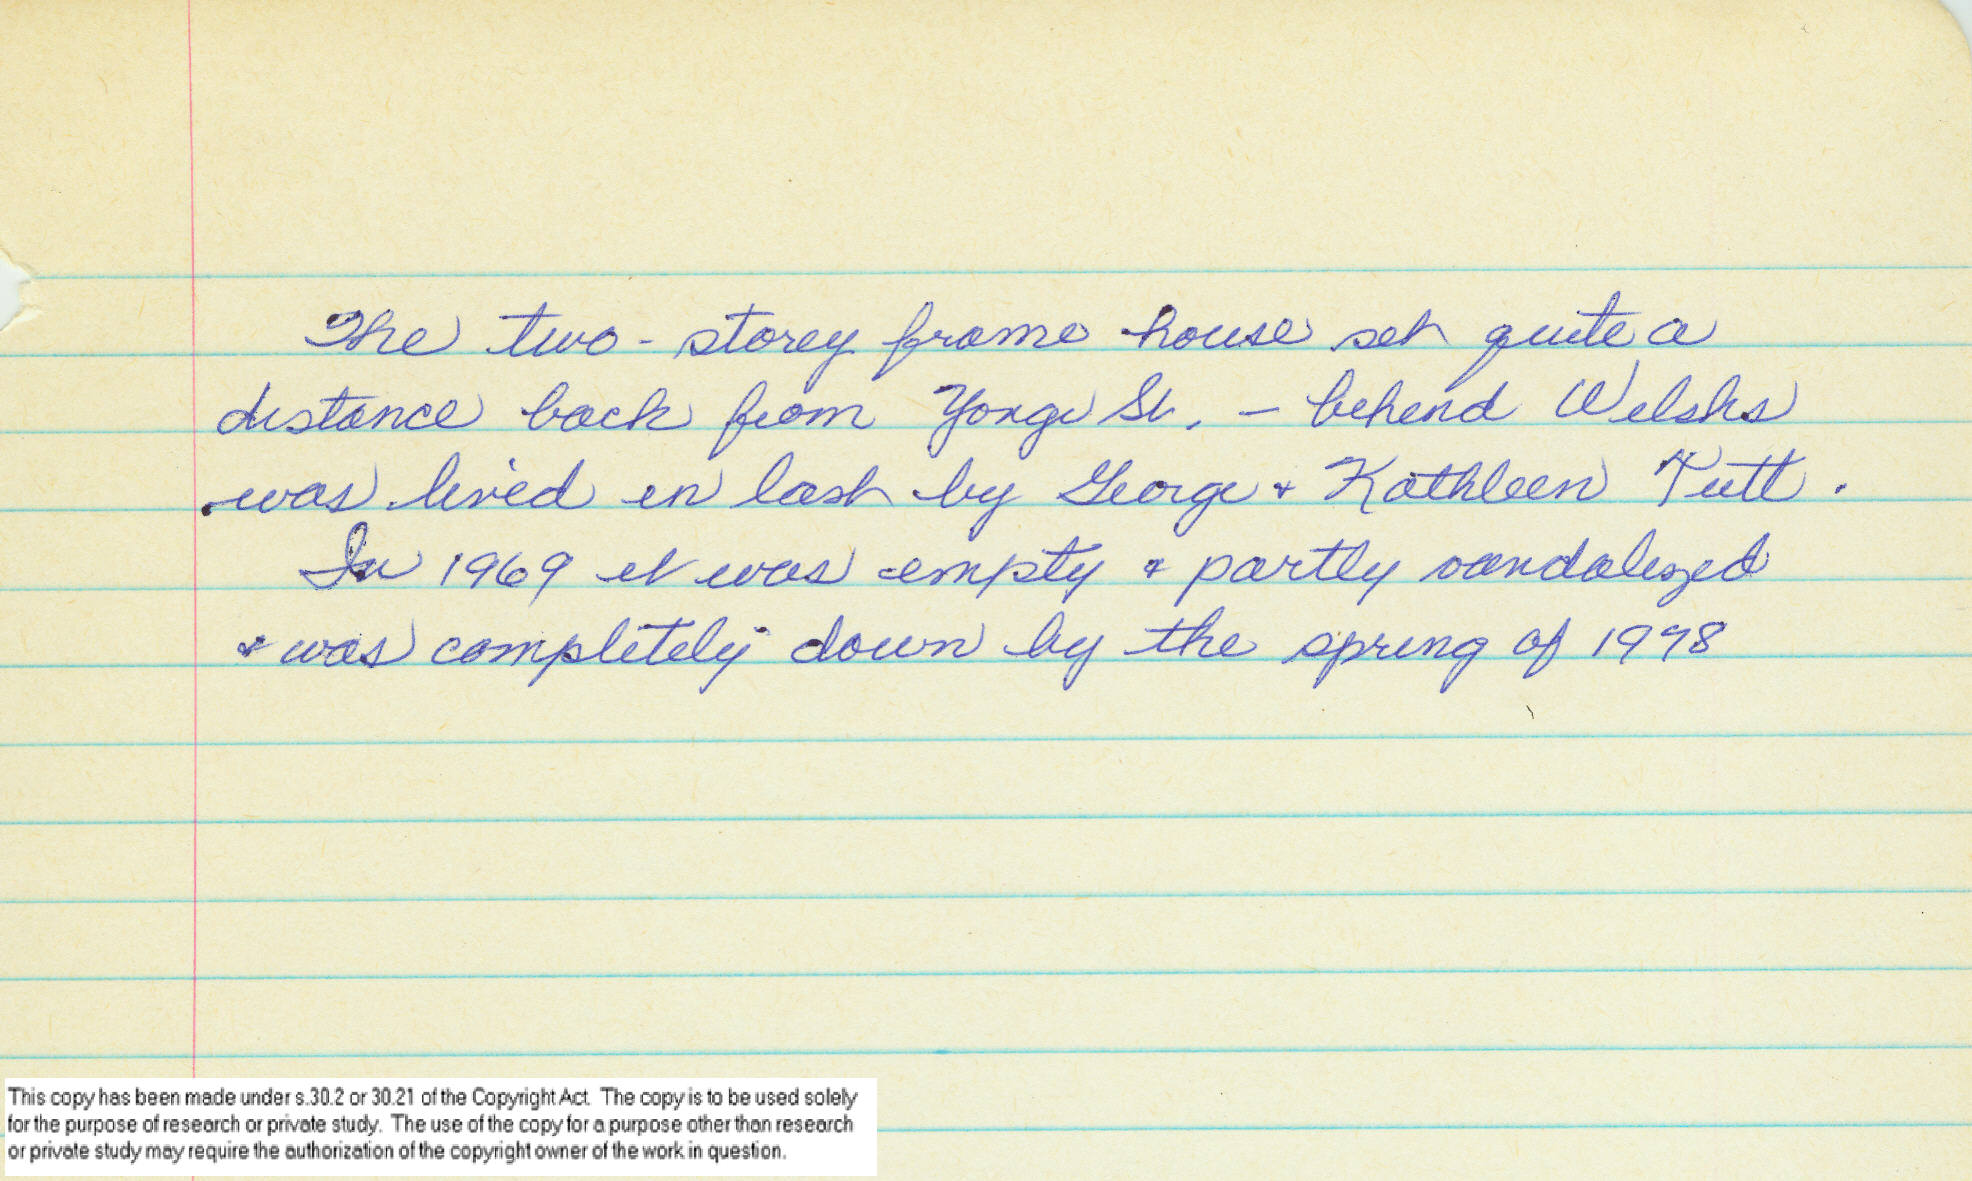 The two-storey frame house set quite a
distance back from Yonge St. - behind Welshs
was lived in last by George + Kathleen Tutt.
In 1969 it was empty + partly vandalized
+ was completely down by the spring of 1978
This copy has been made under s.30.2 or 30.21 of the Copyright Act. The copy is to be used solely
for the purpose of research or private study. The use of the copy for a purpose other than research
or private study may require the authorization of the copyright owner of the work in question.